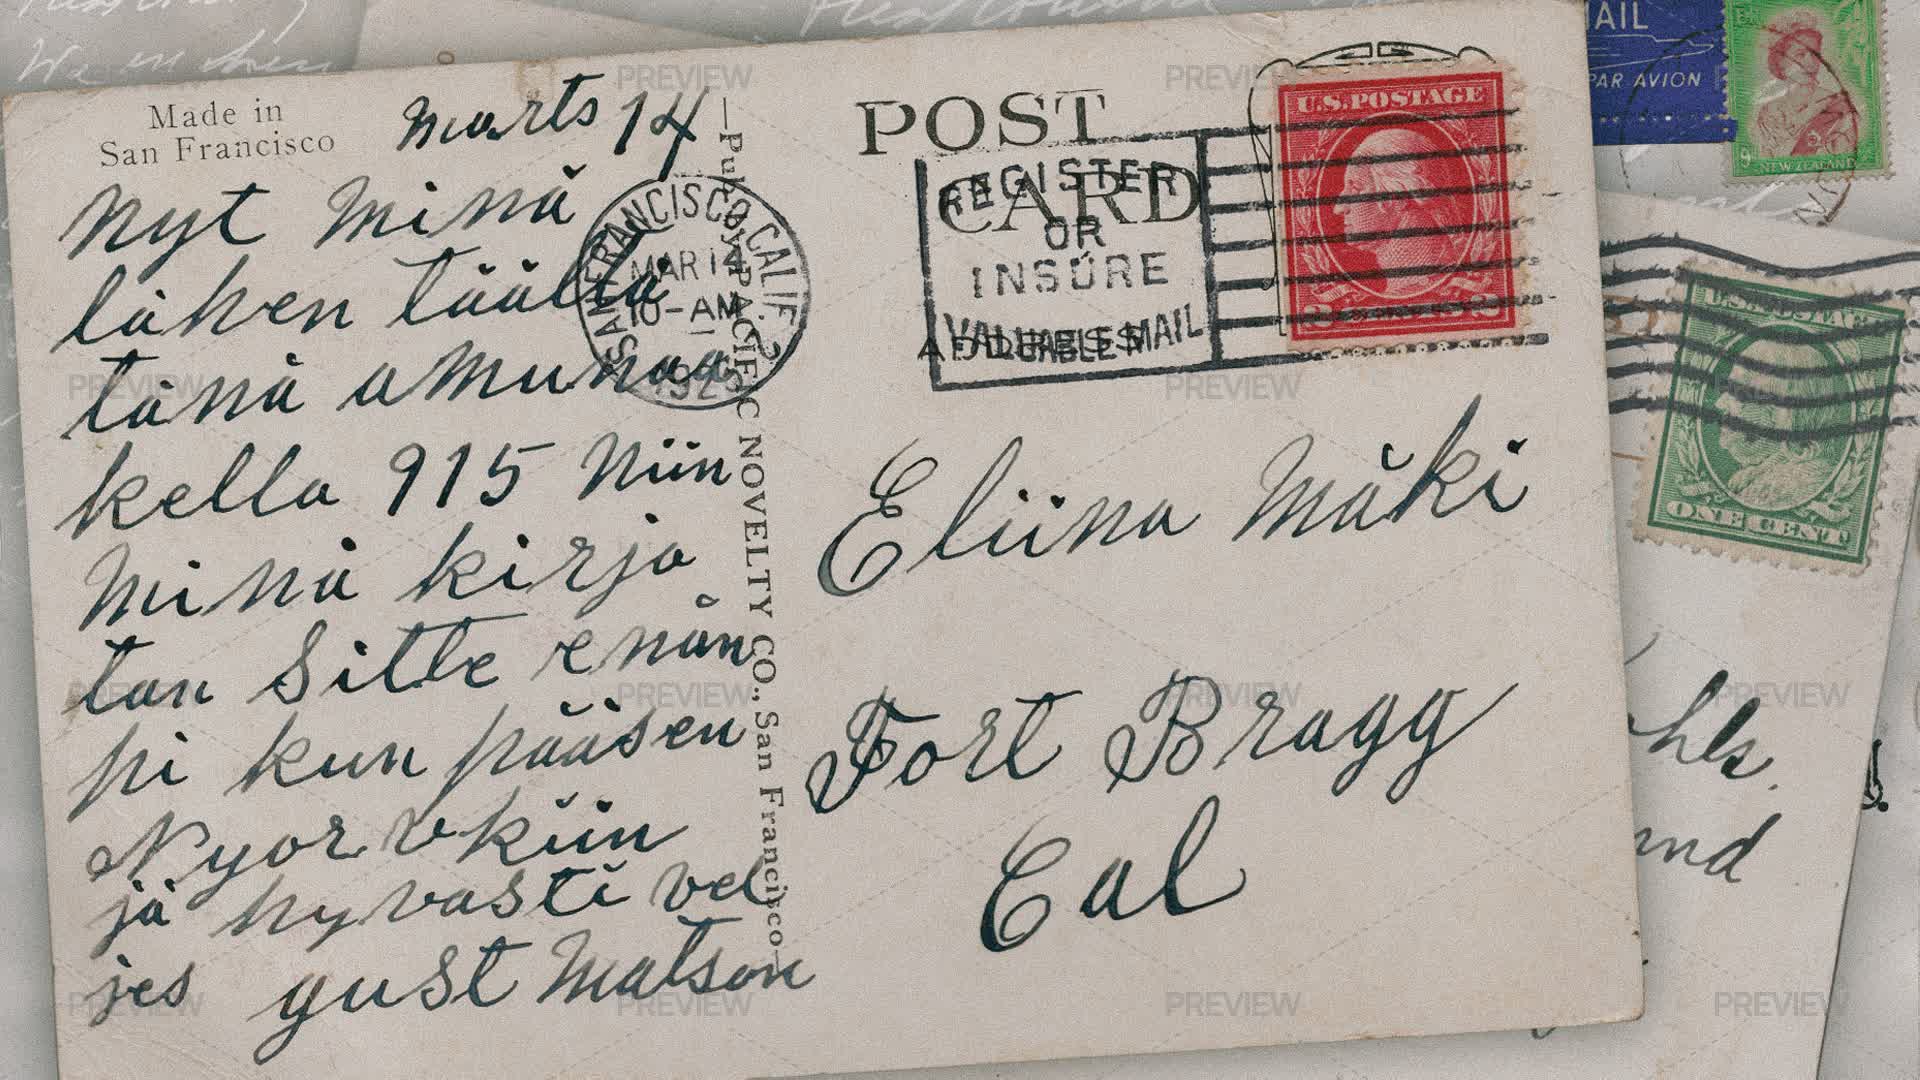 Made in
San Francisco
Marts 14
Nyt Minä
lähen täältä
tänä amunaa
kella 915 Niin
Minä kirjo
tan Sitte enän
pi kun pääsen
Nyor vkiin
jä hyvästi vel
jes gust Matson
—Pub. by PACIFIC NOVELTY CO., San Francisco—
SAN FRANCISCO, CALIF.
MAR 14
10-AM
192
POST
CARD
REGISTER
OR
INSURE
VALUABLE MAIL
U.S. POSTAGE
Eliina Mäki
Fort Bragg
Cal
AIL
PAR AVION
NEW ZEALAND
ONE CENT
hls.
nd
PREVIEW PREVIEW
PREVIEW PREVIEW
PREVIEW PREVIEW PREVIEW PREVIEW
PREVIEW PREVIEW PREVIEW PREVIEW